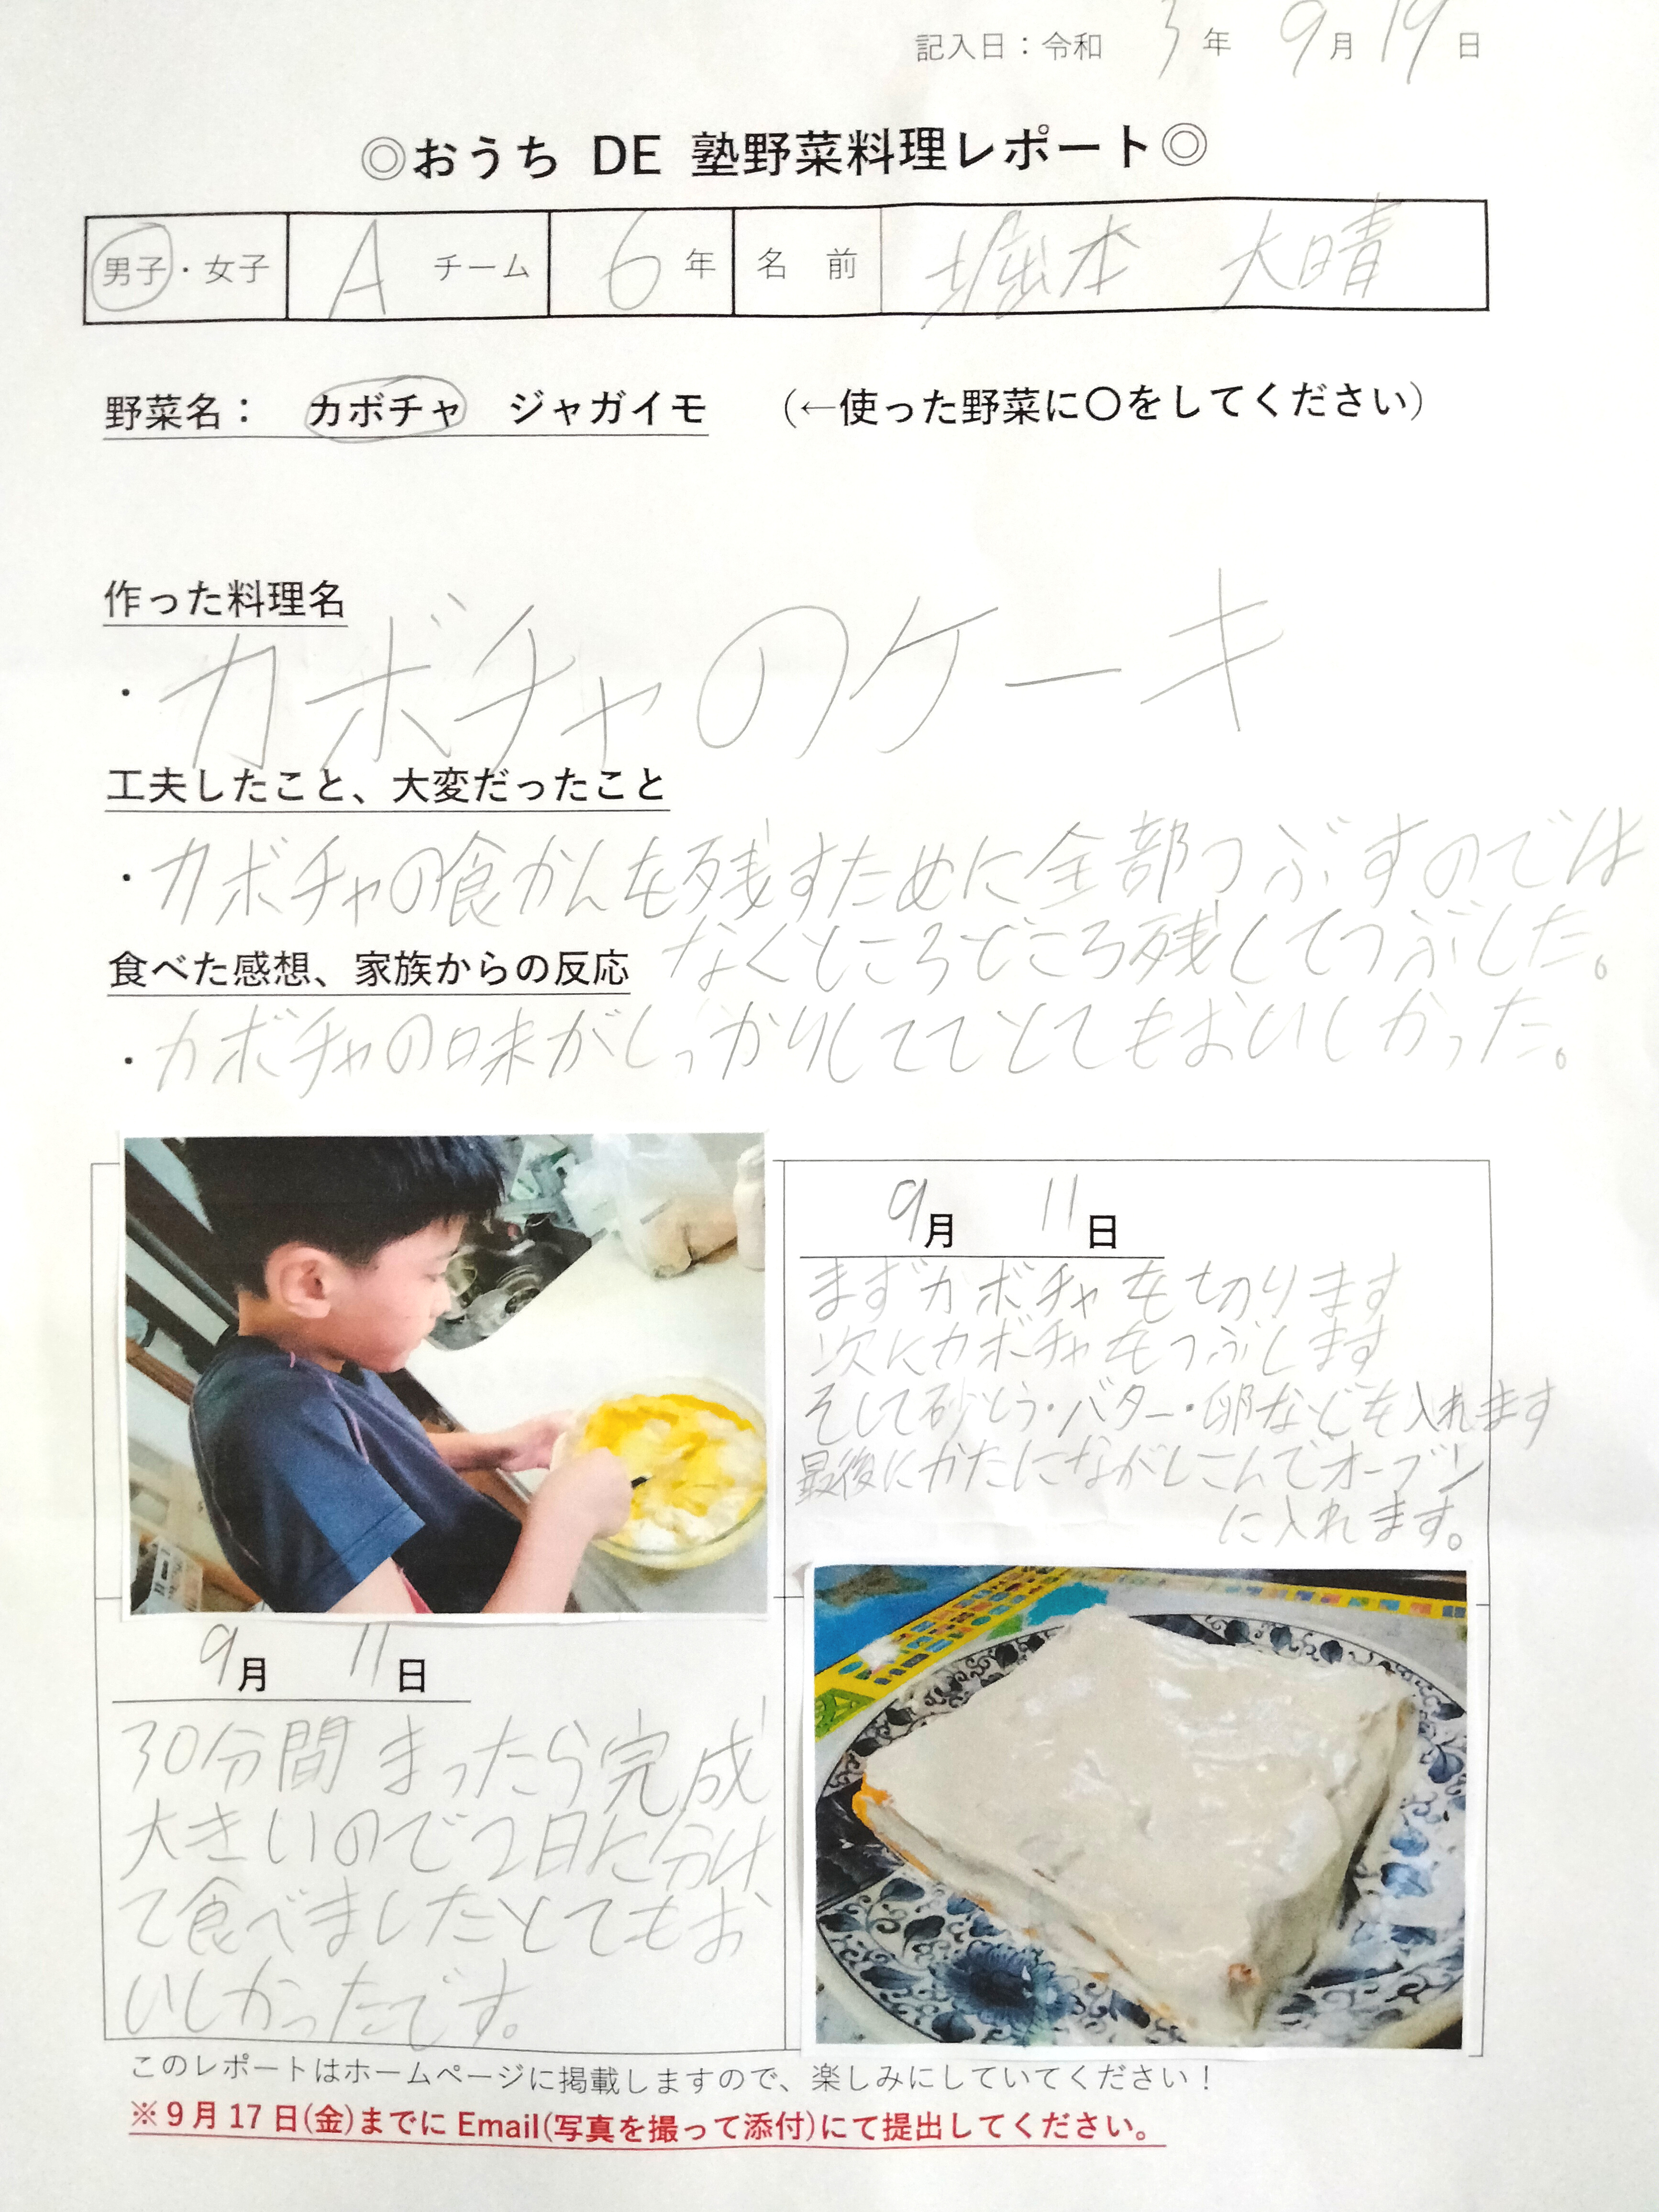 記入日：令和 3 年 9 月 19 日
◎おうち DE 塾野菜料理レポート◎
男子・女子 A チーム 6 年 名 前 堀本 大晴
野菜名： カボチャ ジャガイモ （←使った野菜に〇をしてください）
作った料理名
・カボチャのケーキ
工夫したこと、大変だったこと
・カボチャの食かんを残すために全部つぶすのでは
なくところどころ残してつぶした。
食べた感想、家族からの反応
・カボチャの味がしっかりしててとてもおいしかった。
9月 11日
まずカボチャを切ります
次にカボチャをつぶします
そして砂とう・バター・卵などを入れます
最後にかたにながしこんでオーブン
に入れます。
9月 11日
30分間まったら完成
大きいので2日に分け
て食べましたとてもお
いしかったです。
このレポートはホームページに掲載しますので、楽しみにしていてください！
※９月 17 日(金)までに Email(写真を撮って添付)にて提出してください。